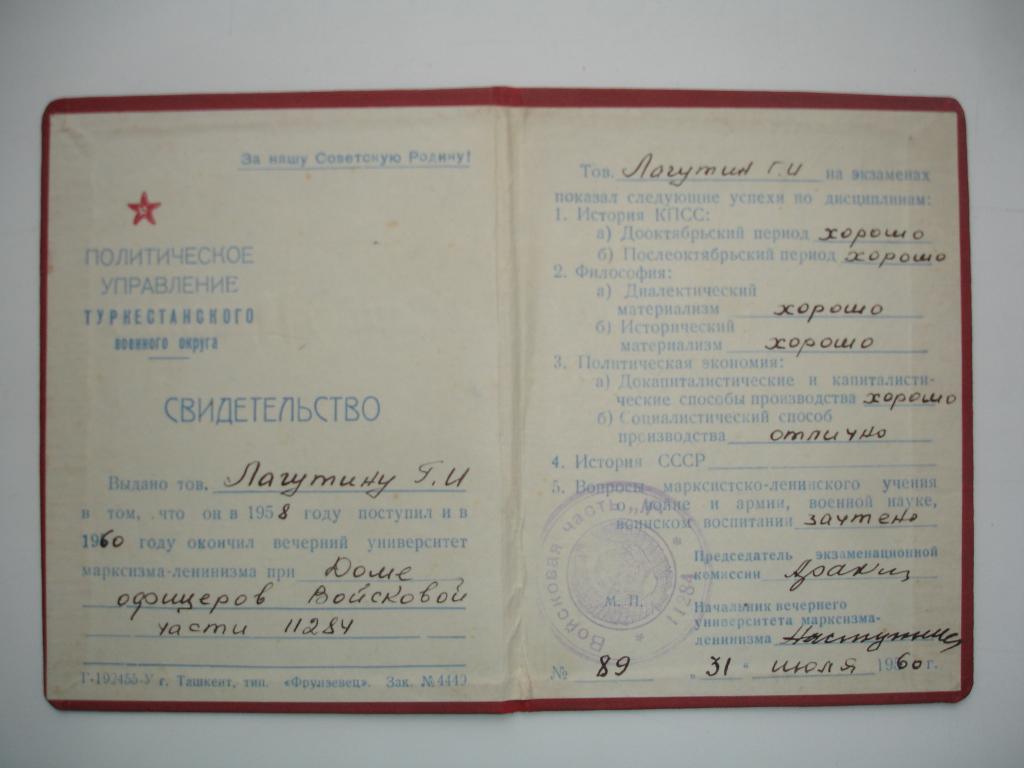 За нашу Советскую Родину!
ПОЛИТИЧЕСКОЕ
УПРАВЛЕНИЕ
ТУРКЕСТАНСКОГО
военного округа
СВИДЕТЕЛЬСТВО
Выдано тов. Лагутину Г.И
в том, что он в 1958 году поступил и в
1960 году окончил вечерний университет
марксизма-ленинизма при Доме
офицеров Войсковой
части 11284
Г-192455-У г. Ташкент, тип. «Фрунзевец». Зак. № 4449
Тов. Лагутин Г.И на экзаменах
показал следующие успехи по дисциплинам:
1. История КПСС:
а) Дооктябрьский период хорошо
б) Послеоктябрьский период хорошо
2. Философия:
а) Диалектический
материализм хорошо
б) Исторический
материализм хорошо
3. Политическая экономия:
а) Докапиталистические и капиталисти-
ческие способы производства хорошо
б) Социалистический способ
производства отлично
4. История СССР
5. Вопросы марксистско-ленинского учения
о войне и армии, военной науке,
воинском воспитании зачтено
Председатель экзаменационной
комиссии
М. П.
Начальник вечернего
университета марксизма-
ленинизма
№ 89 „31" июля 1960 г.
Войсковая часть 11284